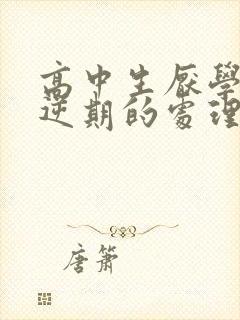 高中生厭學
逆期的處理
唐簫